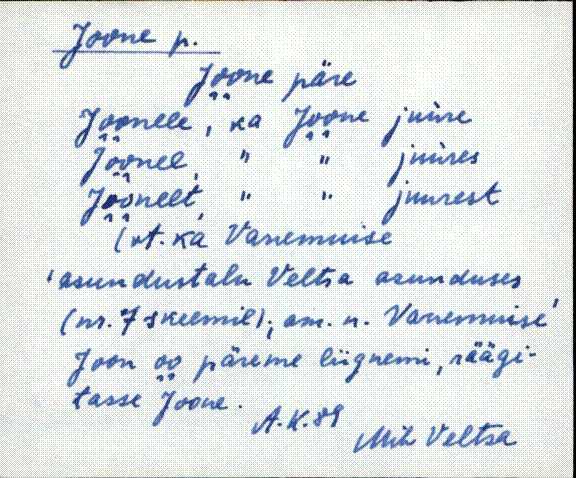 Joone p.
Joone päre
Joonele, ka Joone juure
Joonel, " " juures
Joonelt, " " juurest
(vt. ka Vanemuise
'asundustalu Veltsa asunduses
(nr. 7 skeemil); am. n. Vanemuise'
Joon oo päreme liignemi, räägi-
tasse Joone.
A.K. 89
Mih Veltsa